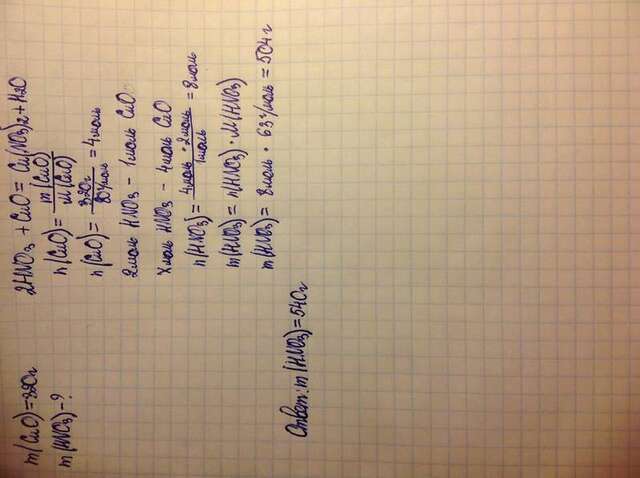 m(CuO)=320г
m(HNO₃)-?
2HNO₃ + CuO = Cu(NO₃)₂ + H₂O
n(CuO) = m(CuO) / M(CuO)
n(CuO) = 320г / 80г/моль = 4моль
2моль HNO₃ - 1моль CuO
Xмоль HNO₃ - 4моль CuO
n(HNO₃) = 4моль · 2моль / 1моль = 8моль
m(HNO₃) = n(HNO₃) · M(HNO₃)
m(HNO₃) = 8моль · 63г/моль = 504г
Ответ: m(HNO₃)=540г